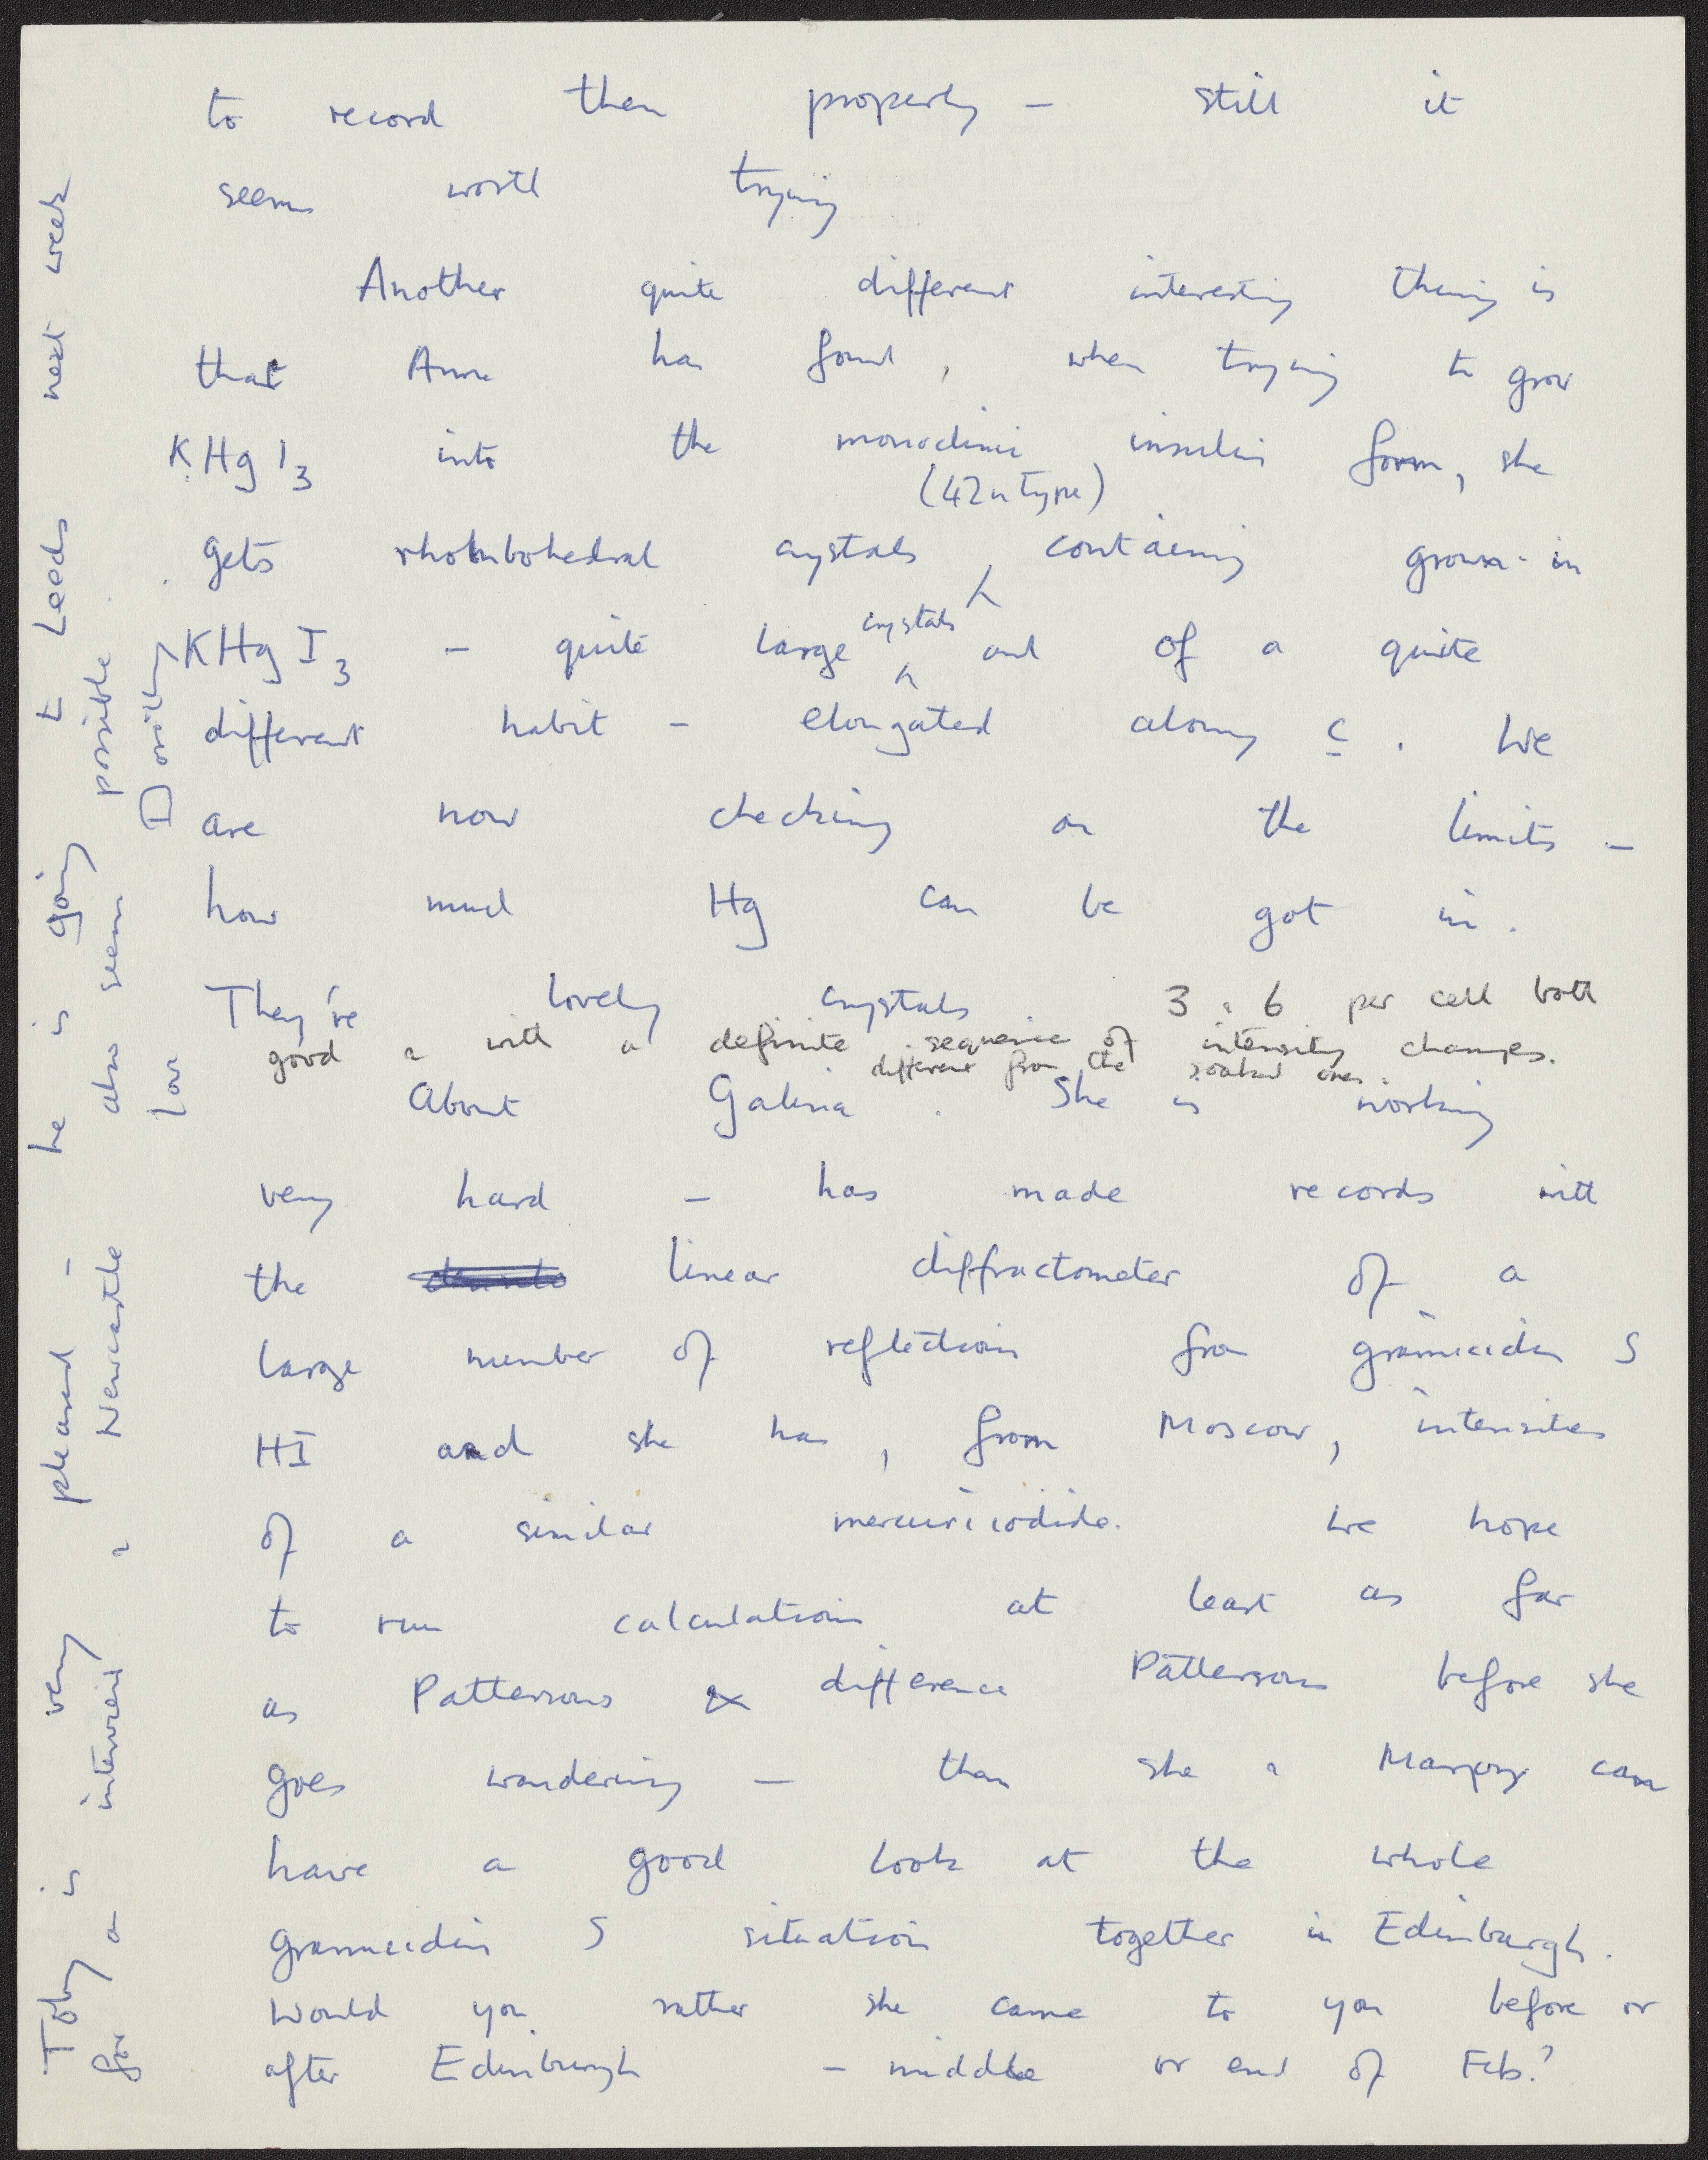 to record them properly – still it
seems worth trying
Another quite different interesting thing is
that Anne has found, when trying to grow
KHgI3 into the monoclinic insulin form, she
(4Zn type)
gets rhombohedral crystals containing grown-in
KHgI3 – quite large crystals and of a quite
different habit – elongated along c. We
are now checking on the limits –
how much Hg can be got in.
They're lovely crystals 3 & 6 per cell both
good & with a definite sequence of intensity changes.
different from the soaked ones.
About Galina. She is working
very hard – has made records with
the linear diffractometer of a
large number of reflections from gramicidin S
HI and she has, from Moscow, intensities
of a similar mercuri iodide. We hope
to run calculations at least as far
as Pattersons & difference Pattersons before she
goes wandering – then she & Marjory can
have a good look at the whole
gramicidin S situation together in Edinburgh.
Would you rather she came to you before or
after Edinburgh – middle or end of Feb?
Toby is very pleased – he is going to Leeds next week
for an interview & Newcastle also seems possible.
Love Dorothy